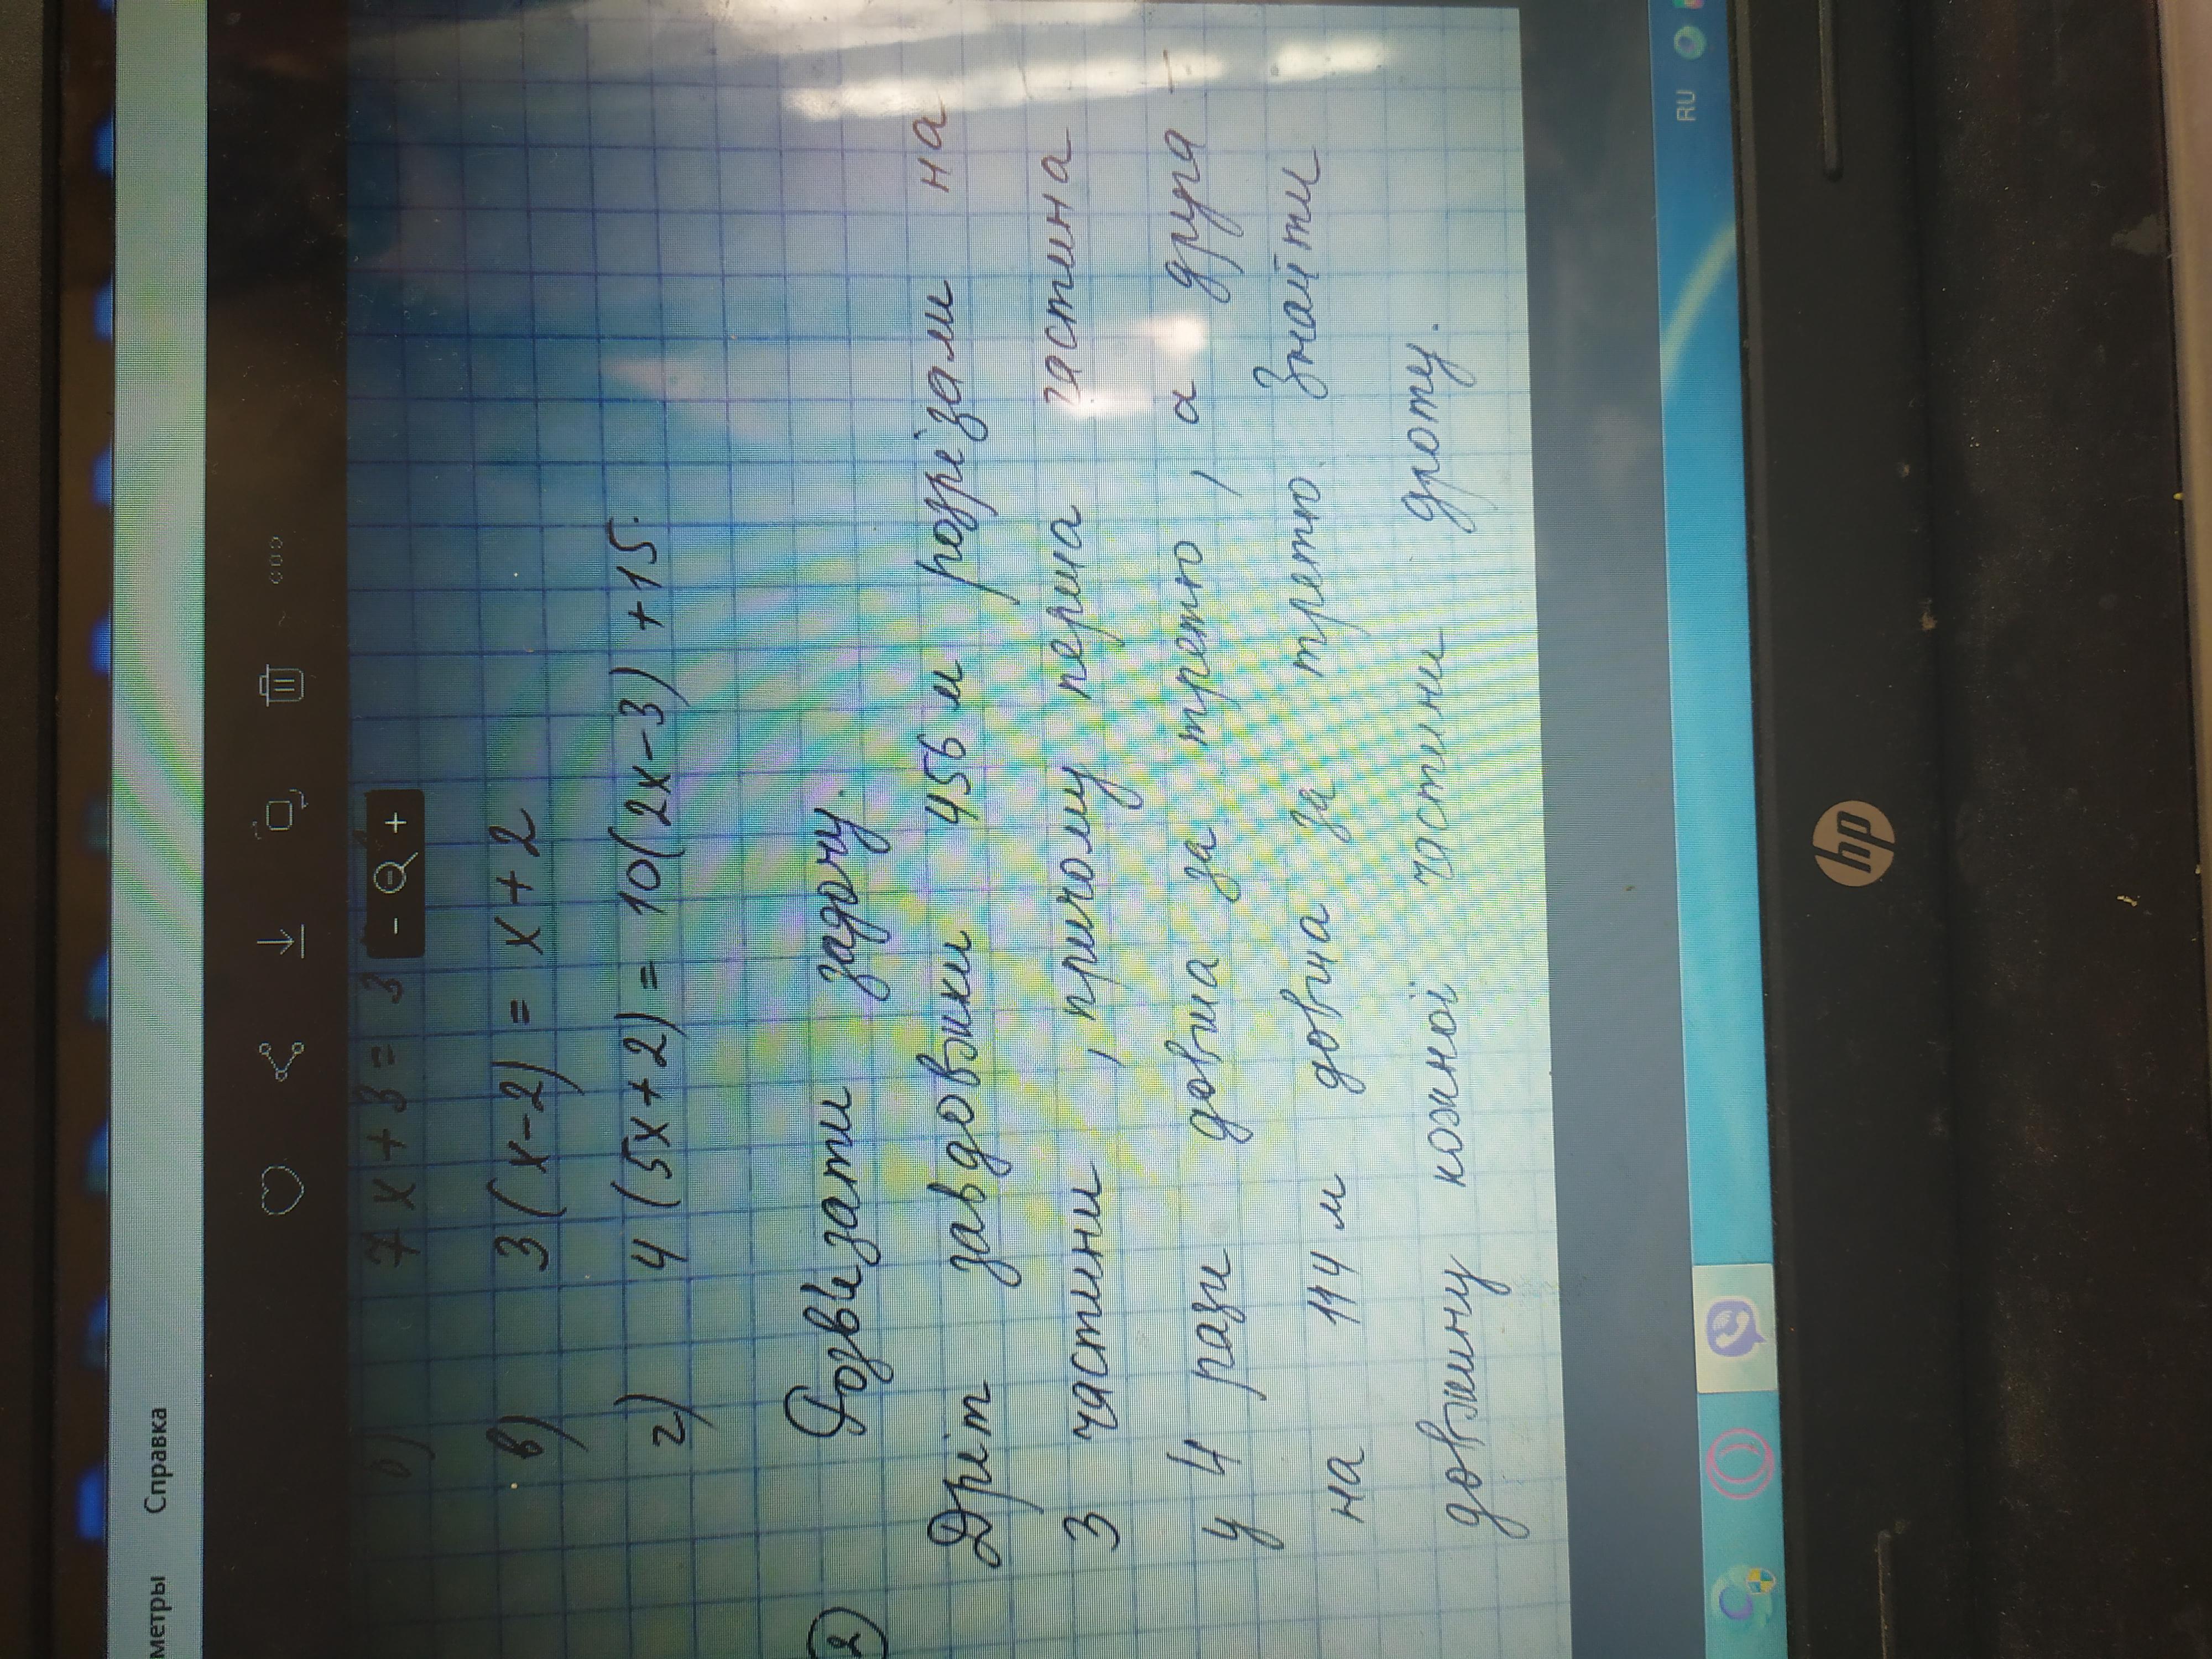 метры Справка
7x + 3 = 3
в) 3(x-2) = x+2
г) 4(5x+2) = 10(2x-3)+15.
2) Розвизати задачу.
Дріт завдовжки 456 м розрізали на
3 частини, причому перша частина
у 4 рази довша за третю, а друга -
на 114 м довша за третю. Знайти
довжину кожної частини дроту.
RU
hp